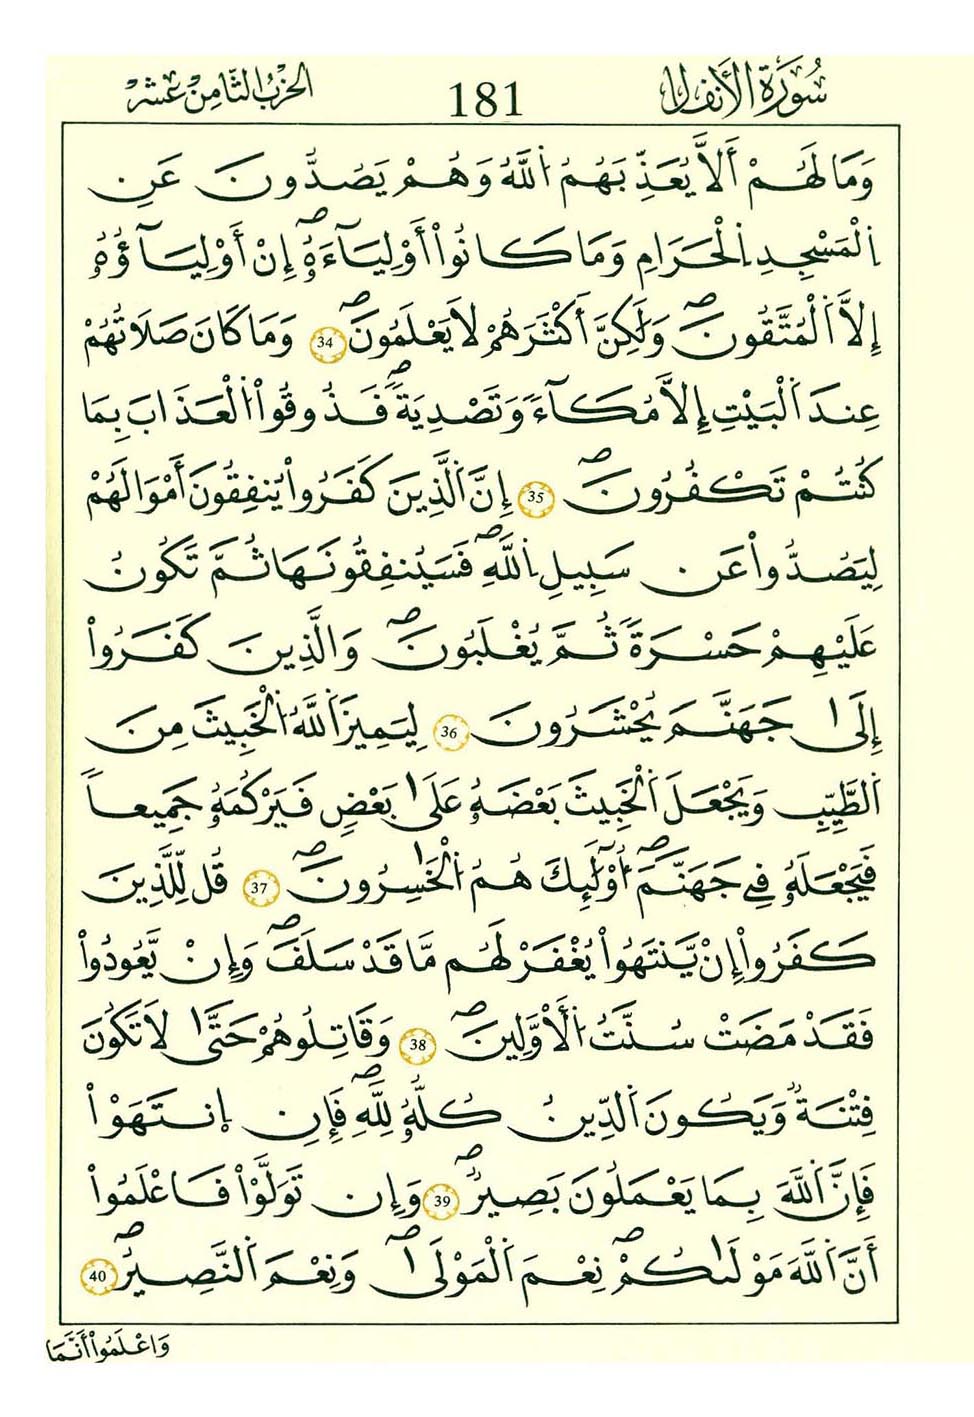 سُورَةُ الْأَنفَالِ
181
الحِزْبُ الثَّامِنَ عَشَرْ
وَمَا لَهُمْ أَلاَّ يُعَذِّبَهُمُ اَللَّهُ وَهُمْ يَصُدُّونَ عَنِ
اِلْمَسْجِدِ اِلْحَرَامِ وَمَا كَانُواْ أَوْلِيَآءَهُۥٓ إِنْ أَوْلِيَآؤُهُۥ
إِلاَّ اَلْمُتَّقُونَ وَلَكِنَّ أَكْثَرَهُمْ لاَ يَعْلَمُونَ 34 وَمَا كَانَ صَلَاتُهُمْ
عِندَ اَلْبَيْتِ إِلاَّ مُكَآءً وَتَصْدِيَةً فَذُوقُواْ اُلْعَذَابَ بِمَا
كُنتُمْ تَكْفُرُونَ 35 إِنَّ اَلَّذِينَ كَفَرُواْ يُنفِقُونَ أَمْوَالَهُمْ
لِيَصُدُّواْ عَن سَبِيلِ اِللَّهِ فَسَيُنفِقُونَهَا ثُمَّ تَكُونُ
عَلَيْهِمْ حَسْرَةً ثُمَّ يُغْلَبُونَ وَالَّذِينَ كَفَرُواْ
إِلَىٰ جَهَنَّمَ يُحْشَرُونَ 36 لِيَمِيزَ اَللَّهُ اُلْخَبِيثَ مِنَ
اَلطَّيِّبِ وَيَجْعَلَ اَلْخَبِيثَ بَعْضَهُۥ عَلَىٰ بَعْضٍ فَيَرْكُمَهُۥ جَمِيعاً
فَيَجْعَلَهُۥ فِے جَهَنَّمَ أُوْلَٰٓئِكَ هُمُ اُلْخَٰسِرُونَ 37 قُل لِّلَّذِينَ
كَفَرُواْ إِنْ يَّنتَهُواْ يُغْفَرْ لَهُم مَّا قَدْ سَلَفَ وَإِنْ يَّعُودُواْ
فَقَدْ مَضَتْ سُنَّتُ اُلْأَوَّلِينَ 38 وَقَاتِلُوهُمْ حَتَّىٰ لاَ تَكُونَ
فِتْنَةٌ وَيَكُونَ اَلدِّينُ كُلُّهُۥ لِلَّهِ فَإِنِ اِنتَهَوْاْ
فَإِنَّ اَللَّهَ بِمَا يَعْمَلُونَ بَصِيرٌ 39 وَإِن تَوَلَّوْاْ فَاعْلَمُواْ
أَنَّ اَللَّهَ مَوْلَىٰكُمْ نِعْمَ اَلْمَوْلَىٰ وَنِعْمَ اَلنَّصِيرُ 40
وَاعْلَمُواْ أَنَّمَا